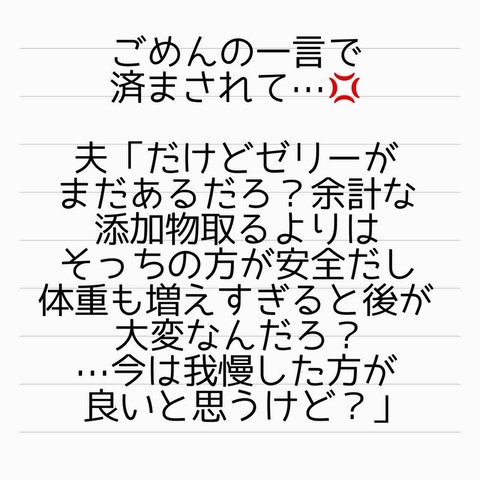 ごめんの一言で
済まされて…💢
夫「だけどゼリーが
まだあるだろ？余計な
添加物取るよりは
そっちの方が安全だし
体重も増えすぎると後が
大変なんだろ？
…今は我慢した方が
良いと思うけど？」